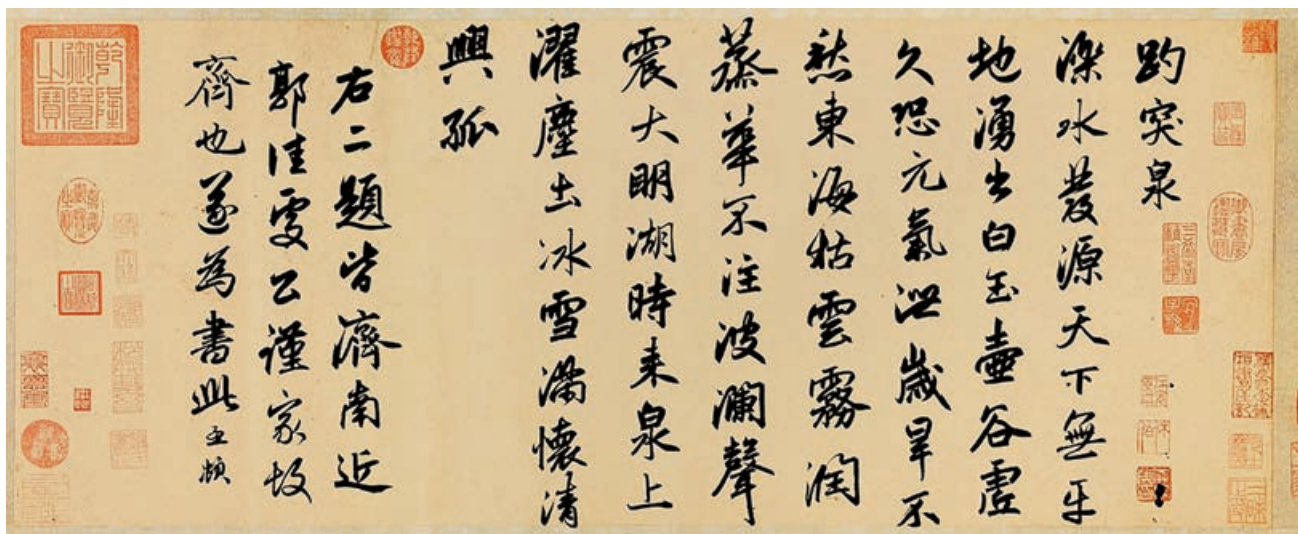 趵突泉
濼水發源天下無平
地湧出白玉壺谷虛
久恐元氣泄歲旱不
愁東海枯雲霧潤
蒸華不注波瀾聲
震大明湖時来泉上
濯塵土冰雪滿懷清
興孤
右二題皆濟南近
郭佳處公謹家故
齊也遂為書此孟頫
乾隆御覽之寶